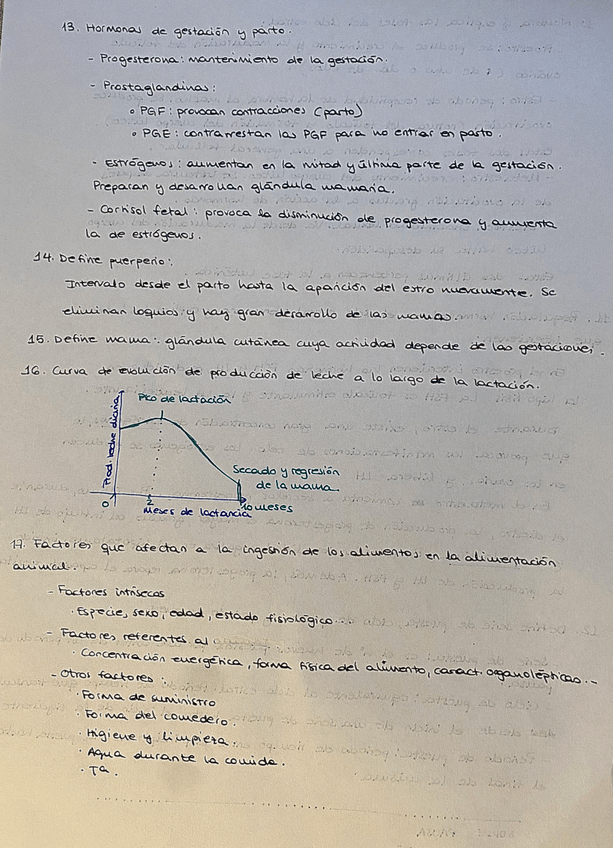 13. Hormonas de gestación y parto.
- Progesterona: mantenimiento de la gestación.
- Prostaglandinas:
o PGF: provocan contracciones (parto)
o PGE: contrarrestan las PGF para no entrar en parto.
- Estrógenos: aumentan en la mitad y última parte de la gestación.
Preparan y desarrollan glándula mamaria.
- Cortisol fetal: provoca la disminución de progesterona y aumenta
la de estrógenos.
14. Define puerperio:
Intervalo desde el parto hasta la aparición del estro nuevamente. Se
eliminan loquios y hay gran desarrollo de las mamas.
15. Define mama: glándula cutánea cuya actividad depende de las gestaciones.
16. Curva de evolución de producción de leche a lo largo de la lactación.
Pico de lactación
Prod. leche diaria
Secado y regresión
de la mama.
0 2 10 meses
Meses de lactancia
17. Factores que afectan a la ingestión de los alimentos en la alimentación
animal.
- Factores intrísecos
· Especie, sexo, edad, estado fisiológico...
- Factores referentes al
· Concentración energética, forma física del alimento, caract. organolépticas...
- Otros factores:
· Forma de suministro
· Forma del comedero.
· Higiene y limpieza.
· Agua durante la comida.
· Tª.